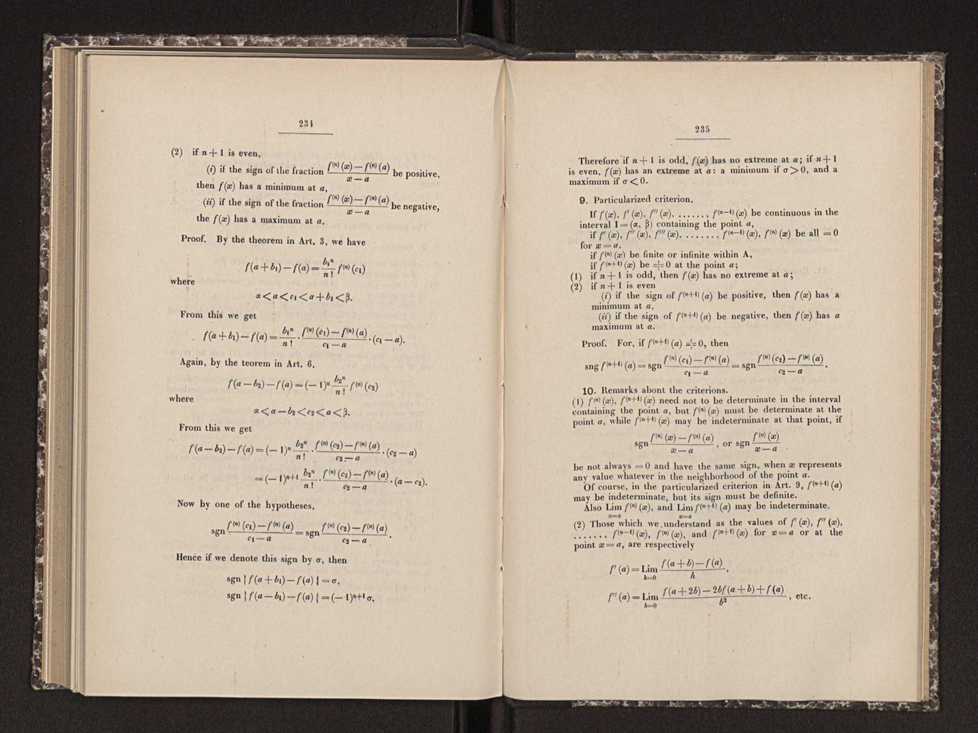 234
(2) if n + 1 is even,
(i) if the sign of the fraction (f⁽ⁿ⁾(x) — f⁽ⁿ⁾(a)) / (x — a) be positive,
then f(x) has a minimum at a,
(ii) if the sign of the fraction (f⁽ⁿ⁾(x) — f⁽ⁿ⁾(a)) / (x — a) be negative,
the f(x) has a maximum at a.
Proof. By the theorem in Art. 3, we have
f(a + b₁) — f(a) = b₁ⁿ / n! f⁽ⁿ⁾(c₁)
where
α < a < c₁ < a + b₁ < β.
From this we get
f(a + b₁) — f(a) = b₁ⁿ / n! · (f⁽ⁿ⁾(c₁) — f⁽ⁿ⁾(a)) / (c₁ — a) · (c₁ — a).
Again, by the teorem in Art. 6,
f(a — b₂) — f(a) = (— 1)ⁿ b₂ⁿ / n! f⁽ⁿ⁾(c₂)
where
α < a — b₂ < c₂ < a < β.
From this we get
f(a — b₂) — f(a) = (— 1)ⁿ b₂ⁿ / n! · (f⁽ⁿ⁾(c₂) — f⁽ⁿ⁾(a)) / (c₂ — a) · (c₂ — a)
= (— 1)ⁿ⁺¹ b₂ⁿ / n! · (f⁽ⁿ⁾(c₂) — f⁽ⁿ⁾(a)) / (c₂ — a) · (a — c₂).
Now by one of the hypotheses,
sgn (f⁽ⁿ⁾(c₁) — f⁽ⁿ⁾(a)) / (c₁ — a) = sgn (f⁽ⁿ⁾(c₂) — f⁽ⁿ⁾(a)) / (c₂ — a).
Hence if we denote this sign by σ, then
sgn { f(a + b₁) — f(a) } = σ,
sgn { f(a — b₁) — f(a) } = (— 1)ⁿ⁺¹ σ,
235
Therefore if n + 1 is odd, f(x) has no extreme at a; if n + 1
is even, f(x) has an extreme at a: a minimum if σ > 0, and a
maximum if σ < 0.
9. Particularized criterion.
If f(x), f′(x), f″(x), ......., f⁽ⁿ⁻¹⁾(x) be continuous in the
interval I = (α, β) containing the point a,
if f′(x), f″(x), f‴(x), ........ f⁽ⁿ⁻¹⁾(x), f⁽ⁿ⁾(x) be all = 0
for x = a,
if f⁽ⁿ⁾(x) be finite or infinite within A,
if f⁽ⁿ⁺¹⁾(x) be ≠ 0 at the point a;
(1) if n + 1 is odd, then f(x) has no extreme at a;
(2) if n + 1 is even
(i) if the sign of f⁽ⁿ⁺¹⁾(a) be positive, then f(x) has a
minimum at a,
(ii) if the sign of f⁽ⁿ⁺¹⁾(a) be negative, then f(x) has a
maximum at a.
Proof. For, if f⁽ⁿ⁺¹⁾(a) ≠ 0, then
sng f⁽ⁿ⁺¹⁾(a) = sgn (f⁽ⁿ⁾(c₁) — f⁽ⁿ⁾(a)) / (c₁ — a) = sgn (f⁽ⁿ⁾(c₂) — f⁽ⁿ⁾(a)) / (c₂ — a).
10. Remarks abont the criterions.
(1) f⁽ⁿ⁾(x), f⁽ⁿ⁺¹⁾(x) need not to be determinate in the interval
containing the point a, but f⁽ⁿ⁾(x) must be determinate at the
point a, while f⁽ⁿ⁺¹⁾(x) may be indeterminate at that point, if
sgn (f⁽ⁿ⁾(x) — f⁽ⁿ⁾(a)) / (x — a), or sgn f⁽ⁿ⁾(x) / (x — a)
be not always = 0 and have the same sign, when x represents
any value whatever in the neighborhood of the point a.
Of course, in the particularized criterion in Art. 9, f⁽ⁿ⁺¹⁾(a)
may be indeterminate, but its sign must be definite.
Also Lim f⁽ⁿ⁾(x), and Lim f⁽ⁿ⁺¹⁾(a) may be indeterminate.
(2) Those which we understand as the values of f′(x), f″(x),
....... f⁽ⁿ⁻¹⁾(x), f⁽ⁿ⁾(x), and f⁽ⁿ⁺¹⁾(x) for x = a or at the
point x = a, are respectively
f′(a) = Lim h=0 (f(a + b) — f(a)) / h,
f″(a) = Lim h=0 (f(a + 2b) — 2bf(a + b) + f(a)) / b², etc.